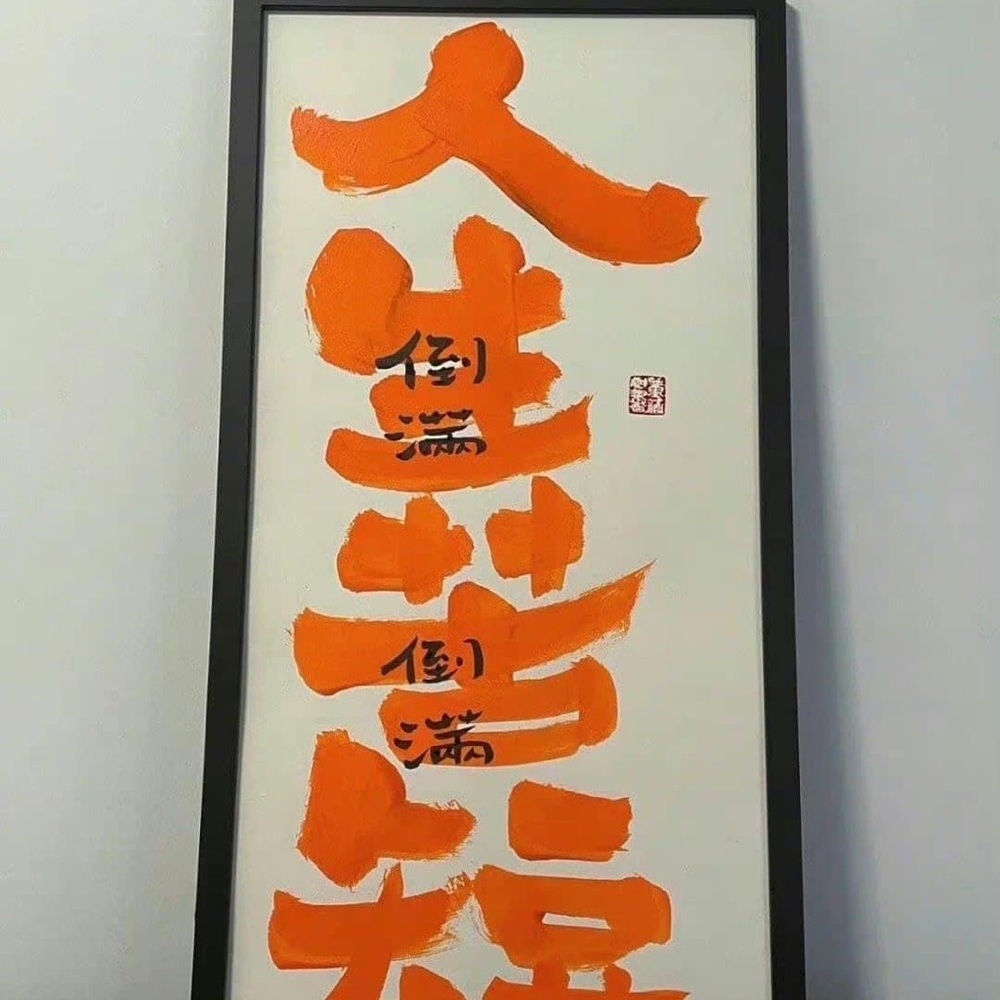 人生苦短
倒满
倒满